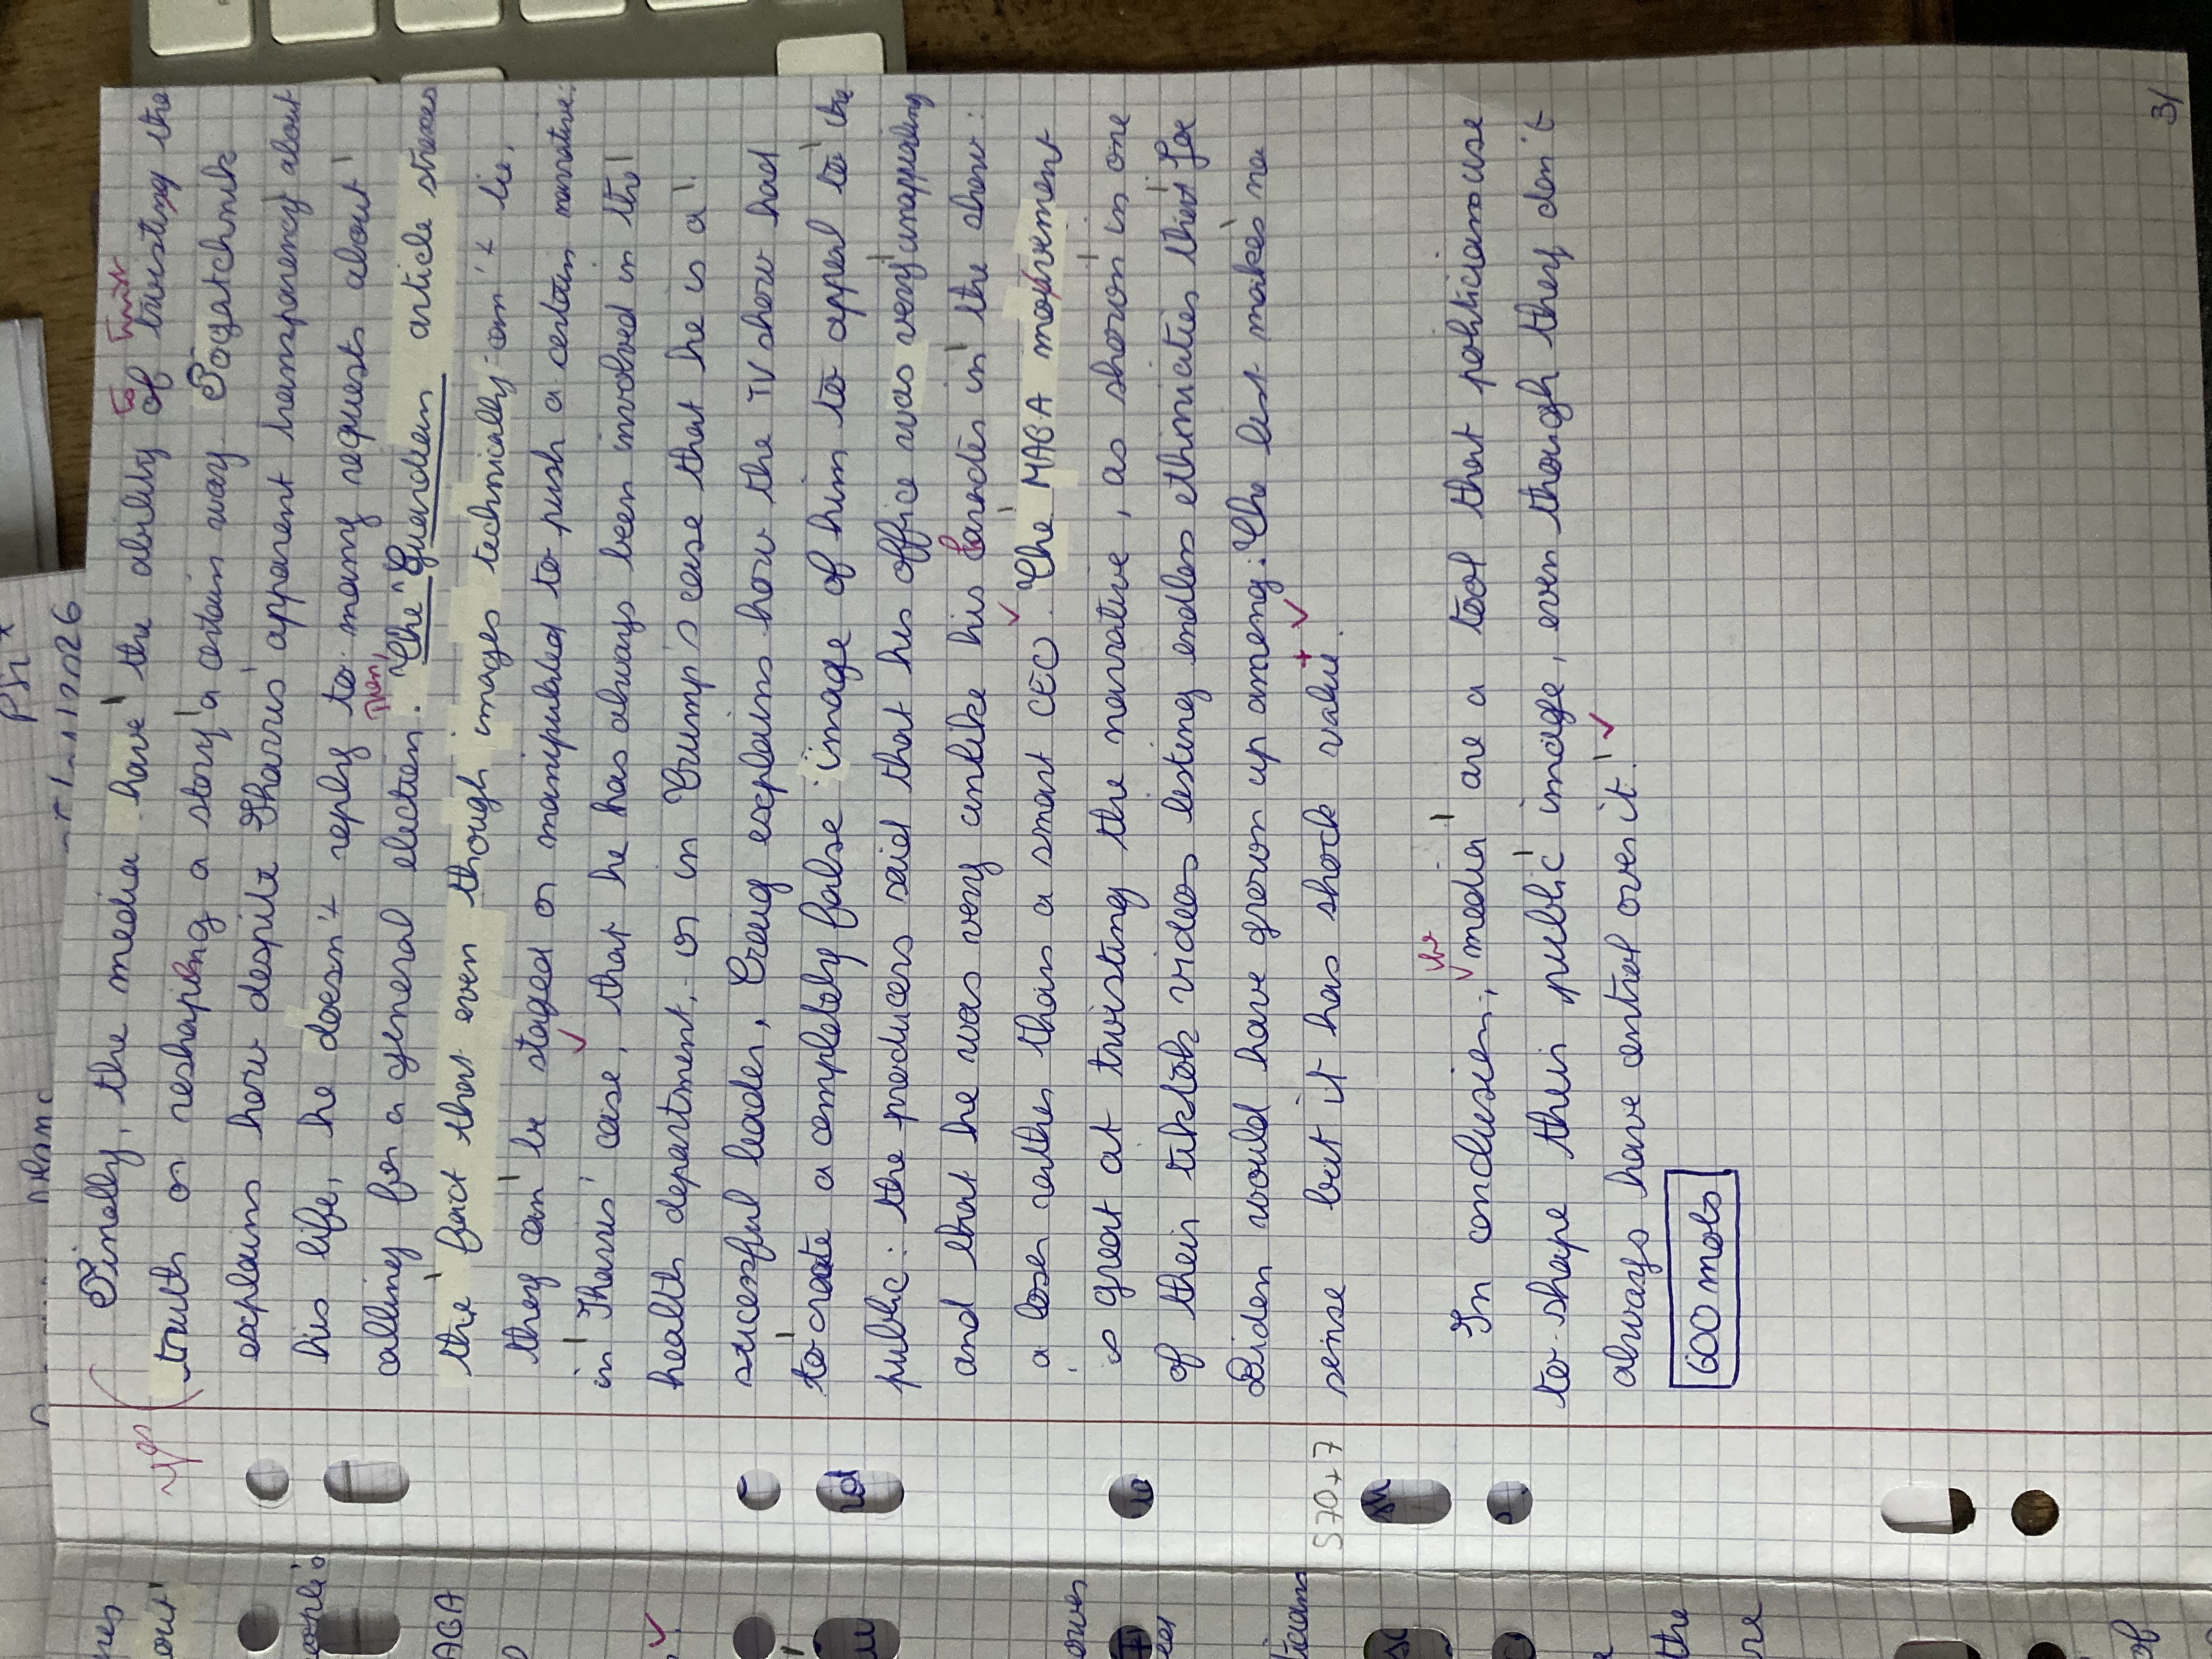 Finally, the media have the ability of twisting the
to twist
truth or reshaping a story a certain way. Pogatchnik
explains how despite Harris' apparent transparency about
his life, he doesn't reply to many requests about
calling for a general election. "The Guardian article stresses
Then,
the fact that even though images technically can't lie,
they can be staged or manipulated to push a certain narrative:
in Harris' case, that he has always been involved in the
health department, or in Trump's case that he is a
succesful leader, Craig explains how the TV show had
to create a completely false image of him to appeal to the
public: the producers said that his office was very unappealing
and that he was very unlike his parodes in the show:
a loser rather than a smart CEO. The MAGA movement
is great at twisting the narrative, as shown in one
of their tiktok videos listing endless ethnicities that Joe
Biden would have grown up among: The list makes no
sense but it has shock value.
In conclusion, media are a tool that politicians use
the
to shape their public image, even though they don't
always have control over it.
600 mots
570+7
3/